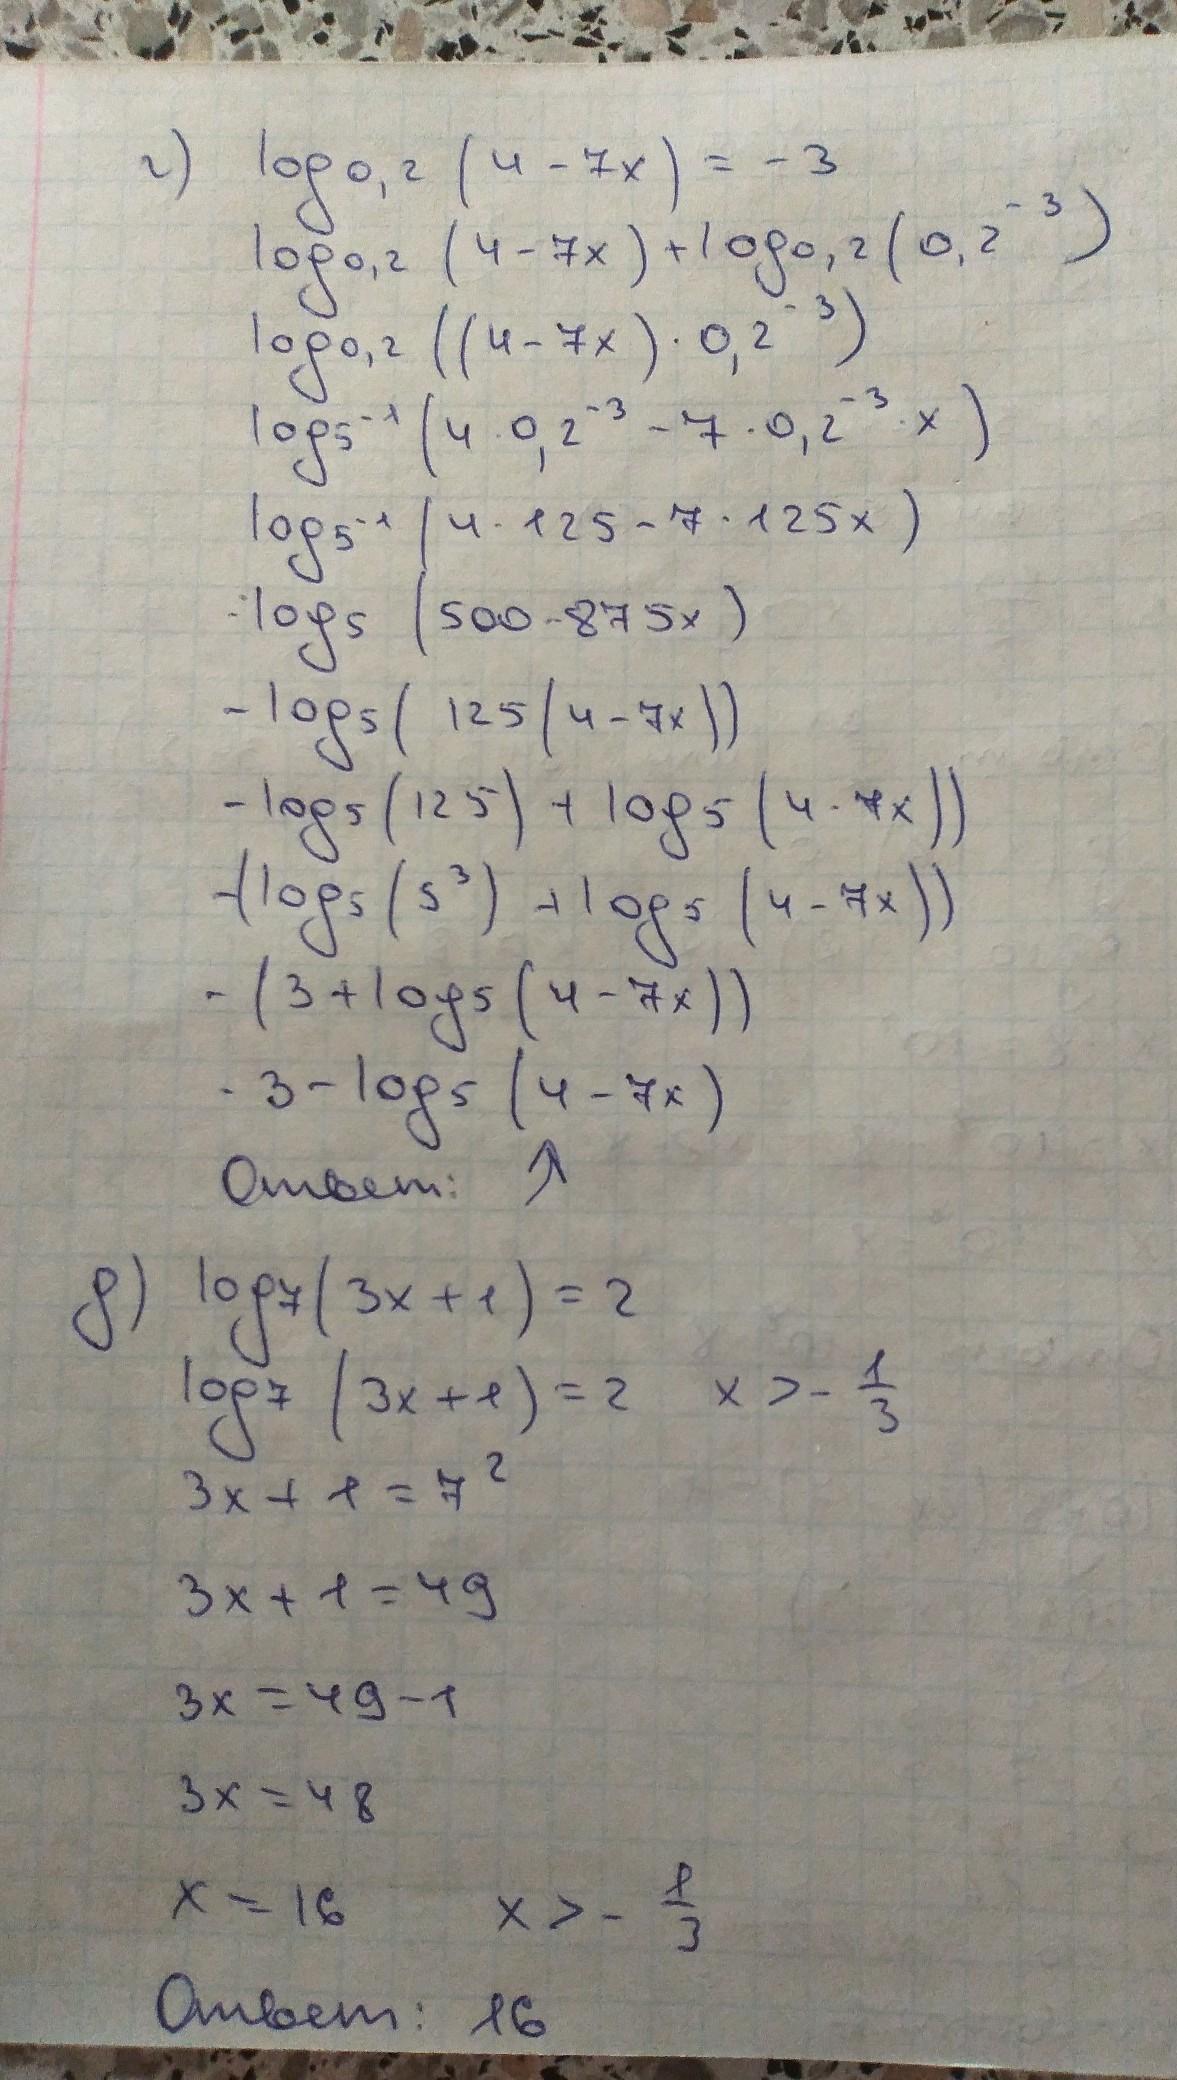 г) log0,2 (4-7x) = -3
log0,2 (4-7x)+log0,2(0,2^-3)
log0,2 ((4-7x)·0,2^-3)
log5^-1 (4·0,2^-3-7·0,2^-3·x)
log5^-1 (4·125-7·125x)
-log5 (500-875x)
-log5( 125(4-7x))
-log5(125) + log5 (4-7x))
-(log5(5^3) + log5 (4-7x))
-(3+log5(4-7x))
-3-log5(4-7x)
Ответ: ↑
g) log7(3x+1)=2
log7 (3x+1)=2 x>-1/3
3x+1=7^2
3x+1=49
3x=49-1
3x=48
x=16 x>-1/3
Ответ: 16